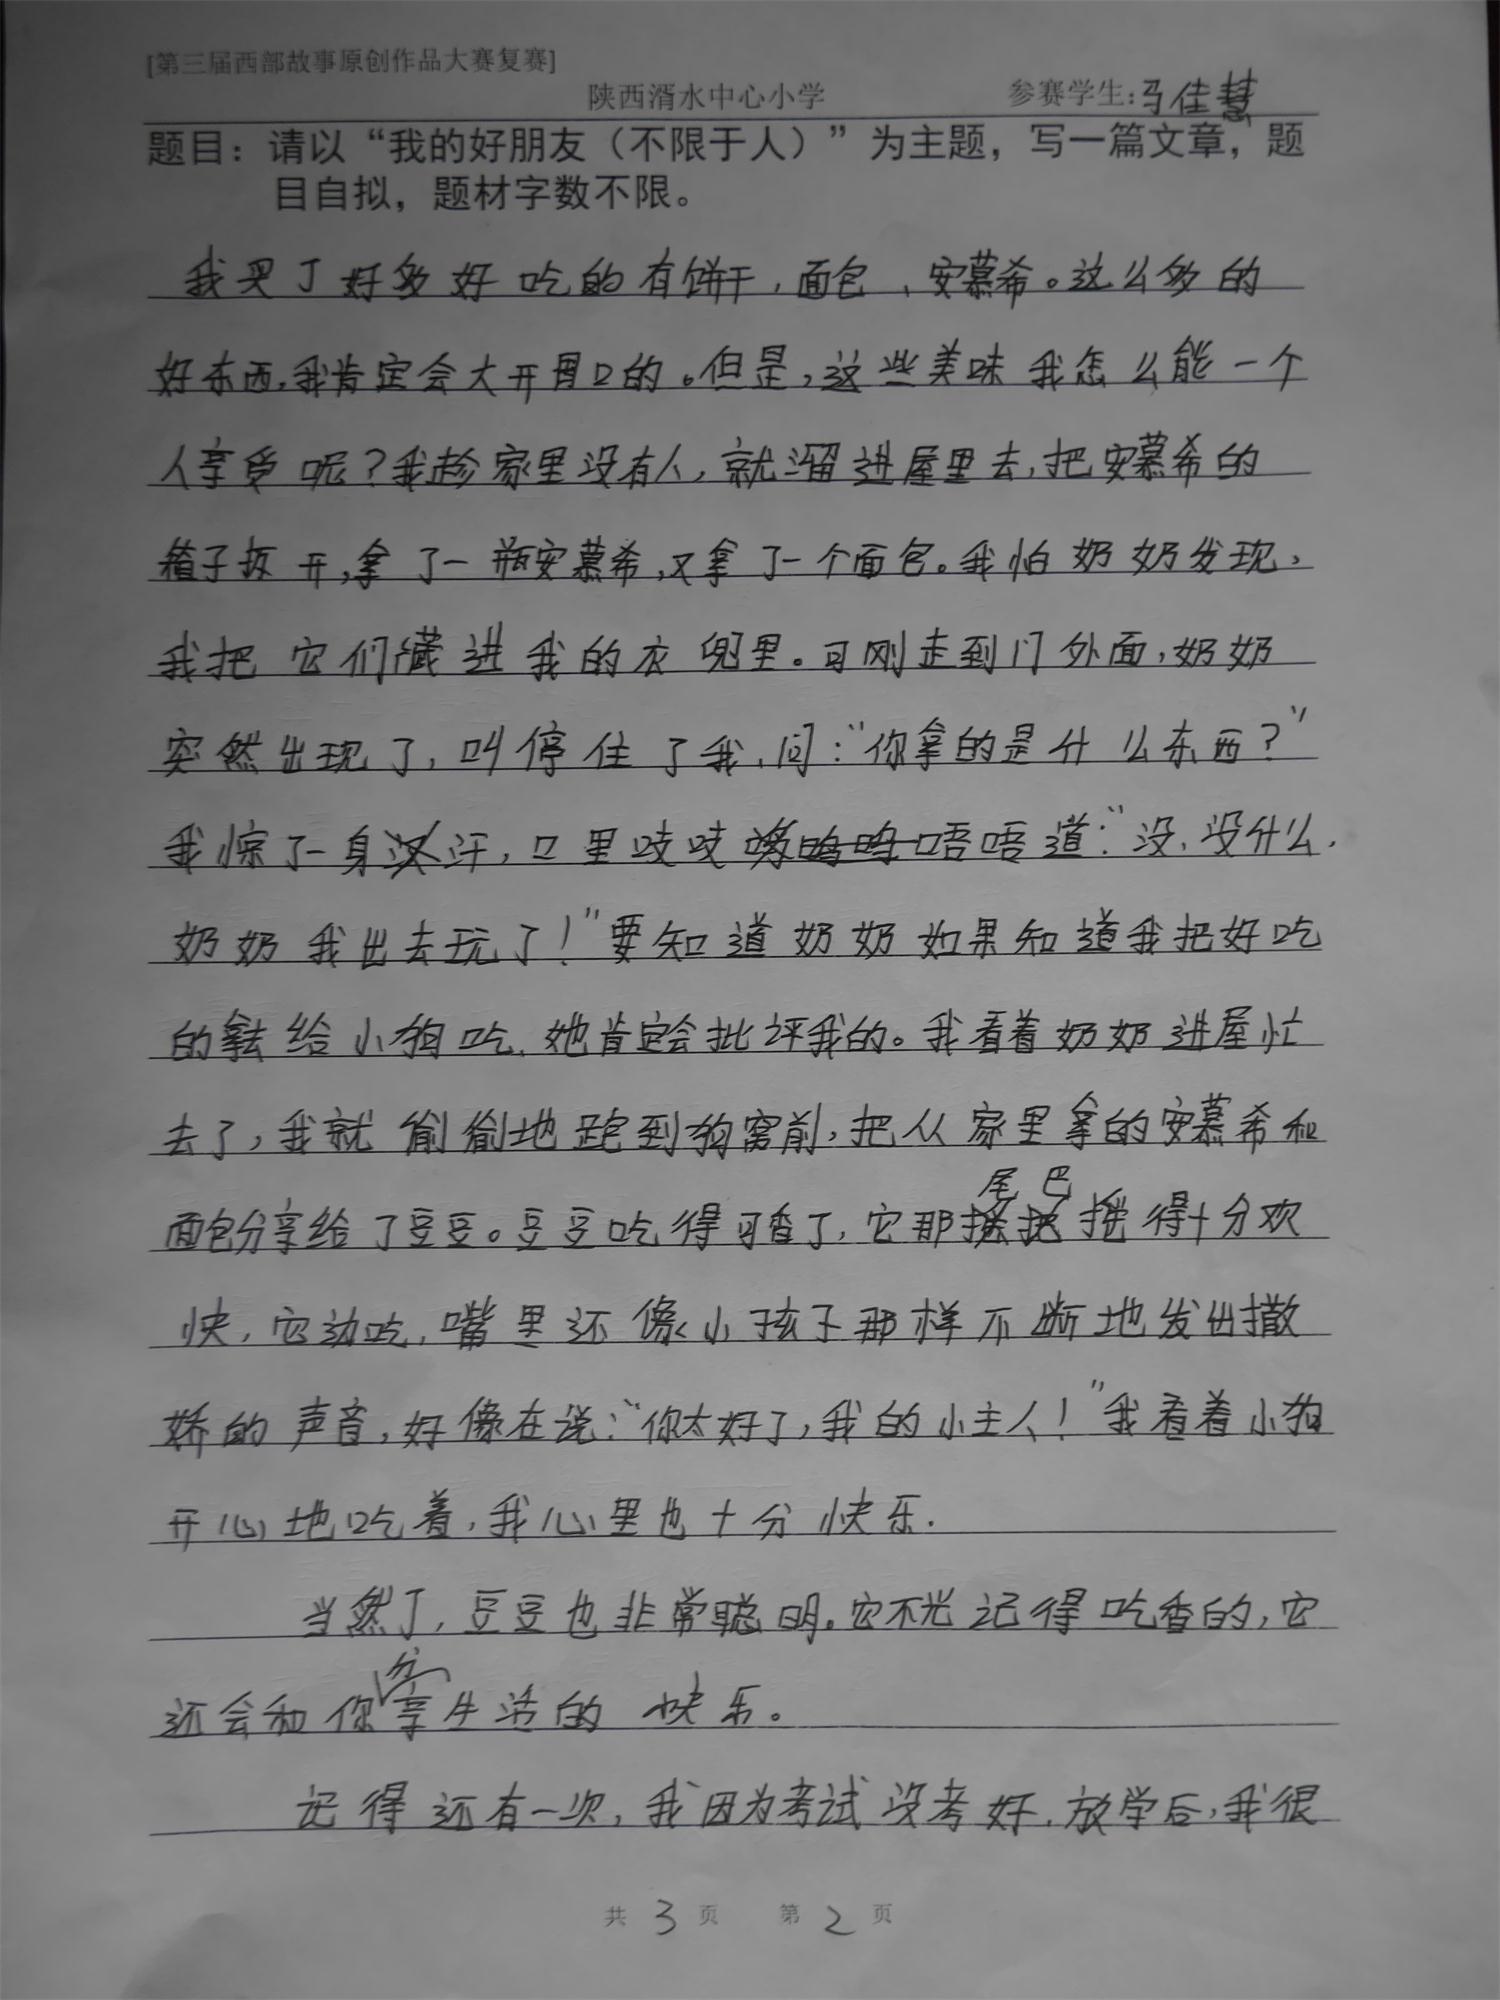 [第三届西部故事原创作品大赛复赛]
陕西湑水中心小学 参赛学生:马佳慧
题目：请以“我的好朋友（不限于人）”为主题，写一篇文章，题
目自拟，题材字数不限。
我买了好多好吃的有饼干，面包、安慕希。这么多的
好东西，我肯定会大开胃口的。但是，这些美味我怎么能一个
人享受呢？我趁家里没有人，就溜进屋里去，把安慕希的
箱子扳开，拿了一瓶安慕希，又拿了一个面包。我怕奶奶发现，
我把它们藏进我的衣兜里。可刚走到门外面，奶奶
突然出现了，叫停住了我，问：“你拿的是什么东西？”
我惊了一身汗，口里吱吱唔唔道：“没，没什么，
奶奶我出去玩了！”要知道奶奶如果知道我把好吃
的拿去给小狗吃，她肯定会批评我的。我看着奶奶进屋忙
去了，我就偷偷地跑到狗窝前，把从家里拿的安慕希和
面包分享给了豆豆。豆豆吃得可香了，它那尾巴摇得十分欢
快，它边吃，嘴里还像小孩子那样不断地发出撒
娇的声音，好像在说：“你太好了，我的小主人！”我看着小狗
开心地吃着，我心里也十分快乐.
当然了，豆豆也非常聪明。它不光记得吃香的，它
还会和你分享生活的快乐。
记得还有一次，我因为考试没考好，放学后，我很
共3页 第2页